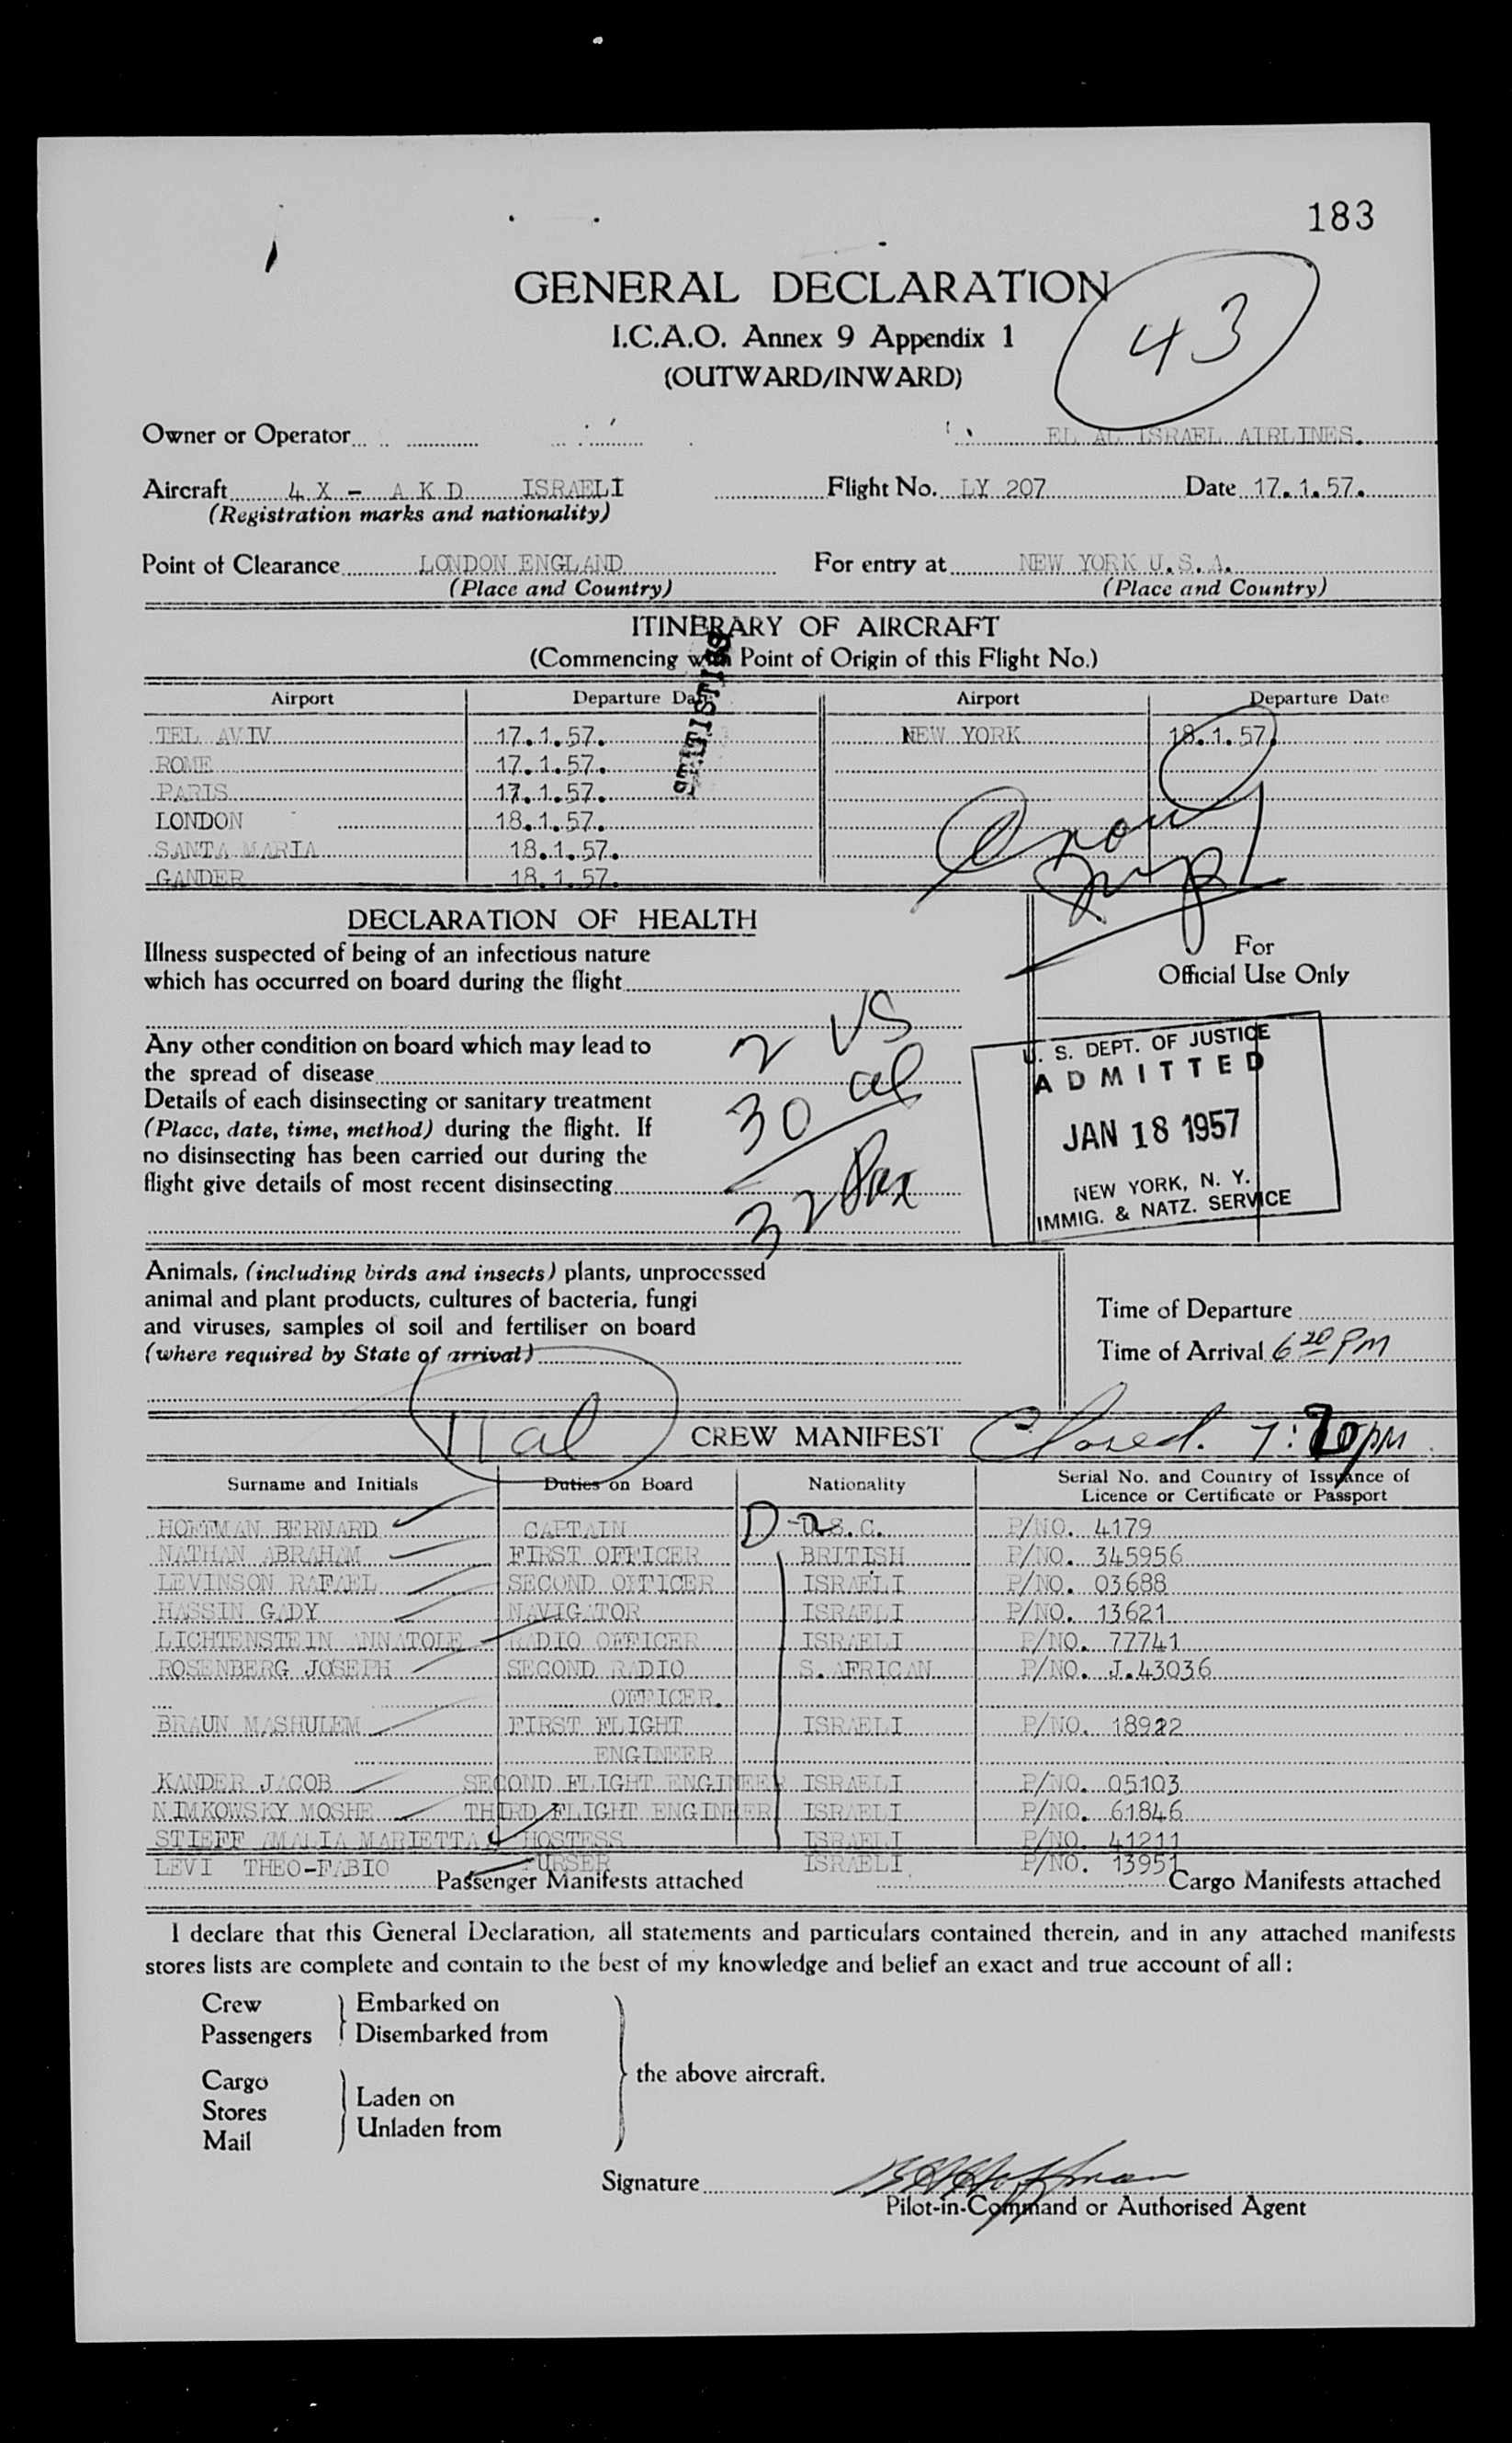 183
GENERAL DECLARATION
43
I.C.A.O. Annex 9 Appendix 1
(OUTWARD/INWARD)
Owner or Operator EL AL ISRAEL AIRLINES.
Aircraft 4 X - A K D ISRAELI Flight No. LY 207 Date 17.1.57.
(Registration marks and nationality)
Point of Clearance LONDON ENGLAND For entry at NEW YORK U.S.A.
(Place and Country) (Place and Country)
ITINERARY OF AIRCRAFT
(Commencing with Point of Origin of this Flight No.)
STATISTICS
Airport Departure Date Airport Departure Date
TEL AVIV 17.1.57. NEW YORK 18.1.57.
ROME 17.1.57.
PARIS 17.1.57.
LONDON 18.1.57.
SANTA MARIA 18.1.57.
GANDER 18.1.57.
DECLARATION OF HEALTH
Illness suspected of being of an infectious nature
which has occurred on board during the flight
For
Official Use Only
2 US
Any other condition on board which may lead to
the spread of disease
30 al
Details of each disinsecting or sanitary treatment
(Place, date, time, method) during the flight. If
no disinsecting has been carried out during the
flight give details of most recent disinsecting
32 Pax
U. S. DEPT. OF JUSTICE
ADMITTED
JAN 18 1957
NEW YORK, N. Y.
IMMIG. & NATZ. SERVICE
Animals, (including birds and insects) plants, unprocessed
animal and plant products, cultures of bacteria, fungi
and viruses, samples of soil and fertiliser on board
(where required by State of arrival)
Time of Departure
Time of Arrival 6 20 PM
11 al
CREW MANIFEST Closed. 7:20 pm
Surname and Initials Duties on Board Nationality Serial No. and Country of Issuance of
Licence or Certificate or Passport
HOFFMAN BERNARD CAPTAIN D - U.S.C. P/NO. 4179
NATHAN ABRAHAM FIRST OFFICER BRITISH P/NO. 345956
LEVINSON RAFAEL SECOND OFFICER ISRAELI P/NO. 03688
HASSIN GADY NAVIGATOR ISRAELI P/NO. 13621
LICHTENSTEIN ANNATOLE RADIO OFFICER ISRAELI P/NO. 77741
ROSENBERG JOSEPH SECOND RADIO S. AFRICAN P/NO. J.43036
OFFICER.
BRAUN MASHULEM FIRST FLIGHT ISRAELI P/NO. 18922
ENGINEER
KANDER JACOB SECOND FLIGHT ENGINEER ISRAELI P/NO. 05103
NIMKOWSKY MOSHE THIRD FLIGHT ENGINEER ISRAELI P/NO. 61846
STIEFF AMALIA MARIETTA HOSTESS ISRAELI P/NO. 41211
LEVI THEO-FABIO PURSER ISRAELI P/NO. 13951
Passenger Manifests attached Cargo Manifests attached
I declare that this General Declaration, all statements and particulars contained therein, and in any attached manifests
stores lists are complete and contain to the best of my knowledge and belief an exact and true account of all:
Crew
Passengers
Embarked on
Disembarked from
Cargo
Stores
Mail
Laden on
Unladen from
the above aircraft.
Signature
Pilot-in-Command or Authorised Agent